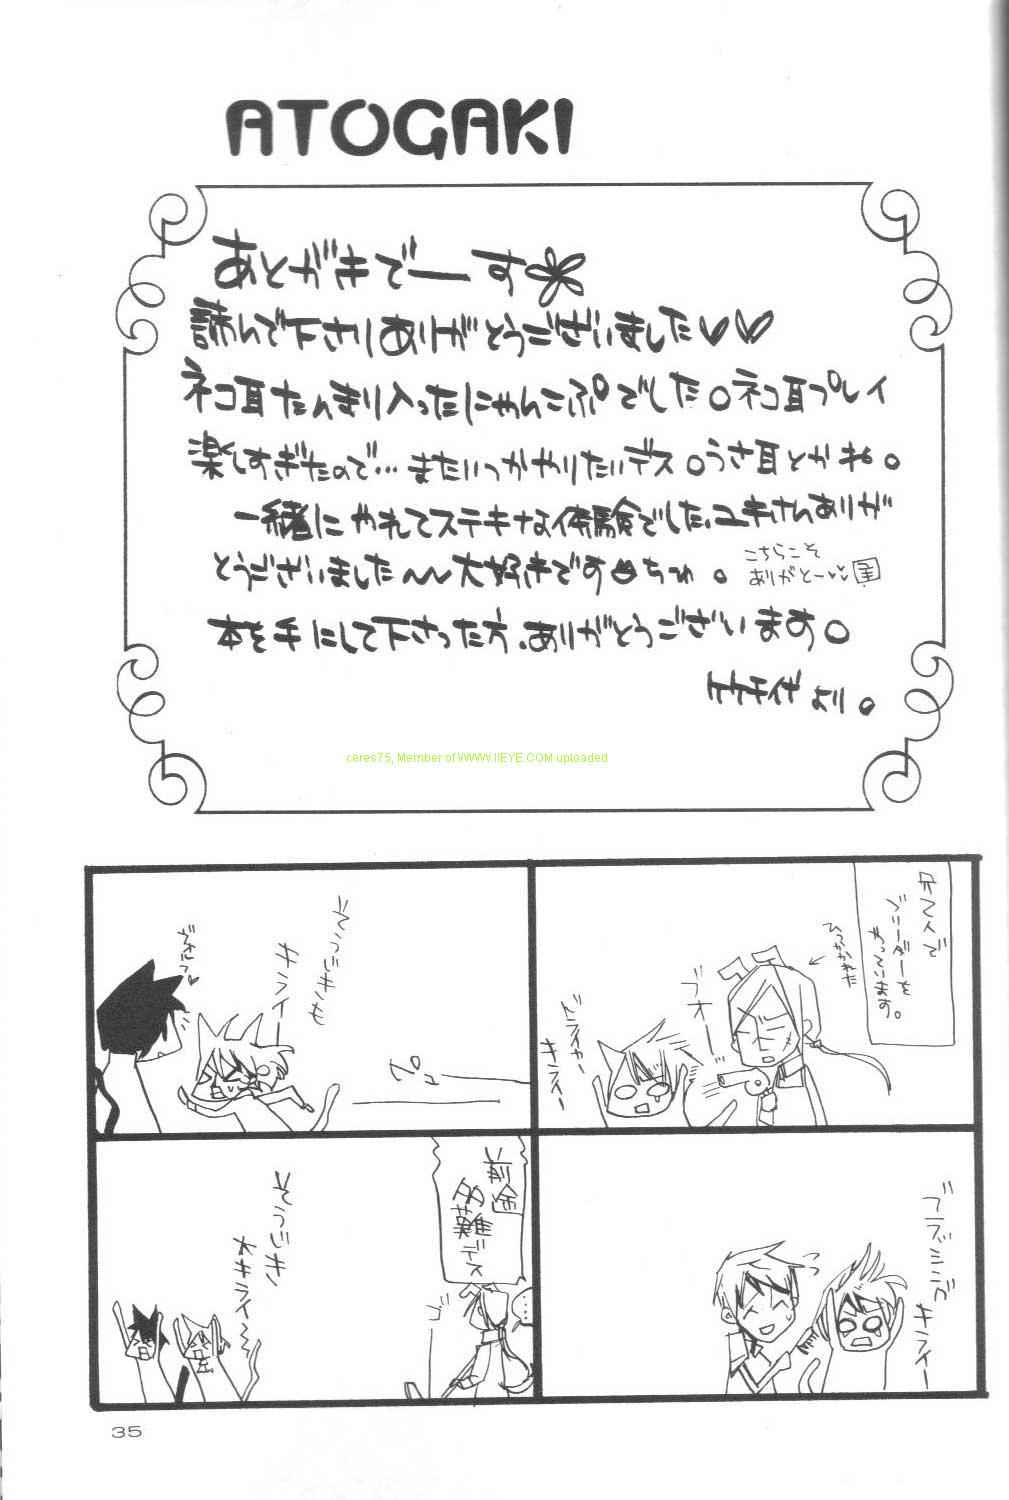 ATOGAKI
あとがきでーす
読んで下さりありがとうございました♡♡
ネコ耳たんまり入ったにゃんこぷでした。ネコ耳プレイ
楽しすぎたので…またいつかやりたいデス。うさ耳とかね。
一緒にやれてステキな体験でした、ユキさんありが
とうございました〜〜大好きです♡ちゅ。
こちらこそ
ありがとー♡♡
本を手にして下さった方、ありがとうございます。
より。
ceres75, Member of WWW.IIEYE.COM uploaded
で
ブリーダーを
やっています。
ひっかかれた
ブオー
ドライヤー
キライー
ブラッシング
キライー
そうじきも
キライー
前途
多難デス
そうじき
大キライ〜
35